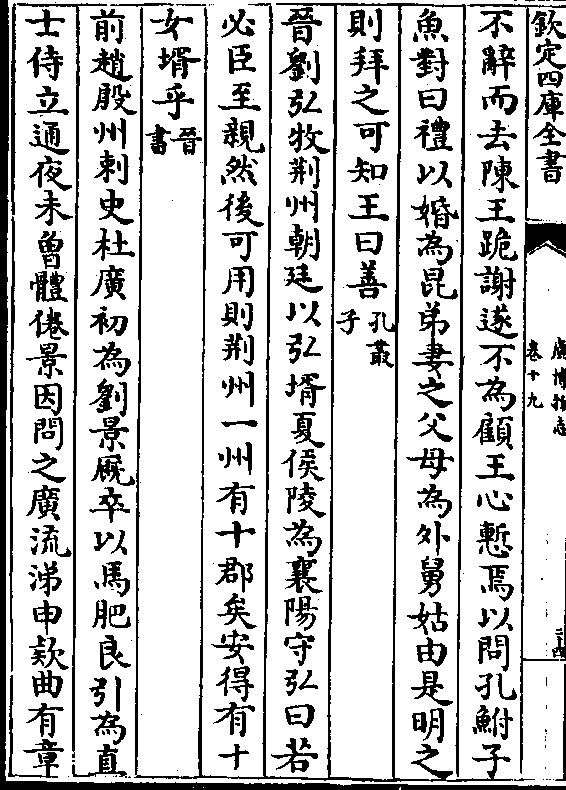 欽定四庫全書
廣博物志
卷十九
不辭而去陳王跪謝遂不為顧王心慙焉以問孔鮒子
魚對曰禮以婚為昆弟妻之父母為外舅姑由是明之
則拜之可知王曰善孔叢子
晉劉弘牧荆州朝廷以弘壻夏侯陵為襄陽守弘曰若
必臣至親然後可用則荆州一州有十郡矣安得有十
女壻乎晉書
前趙殷州刺史杜廣初為劉景厩卒以馬肥良引為直
士侍立通夜未曾體倦景因問之廣流涕申欵曲有章